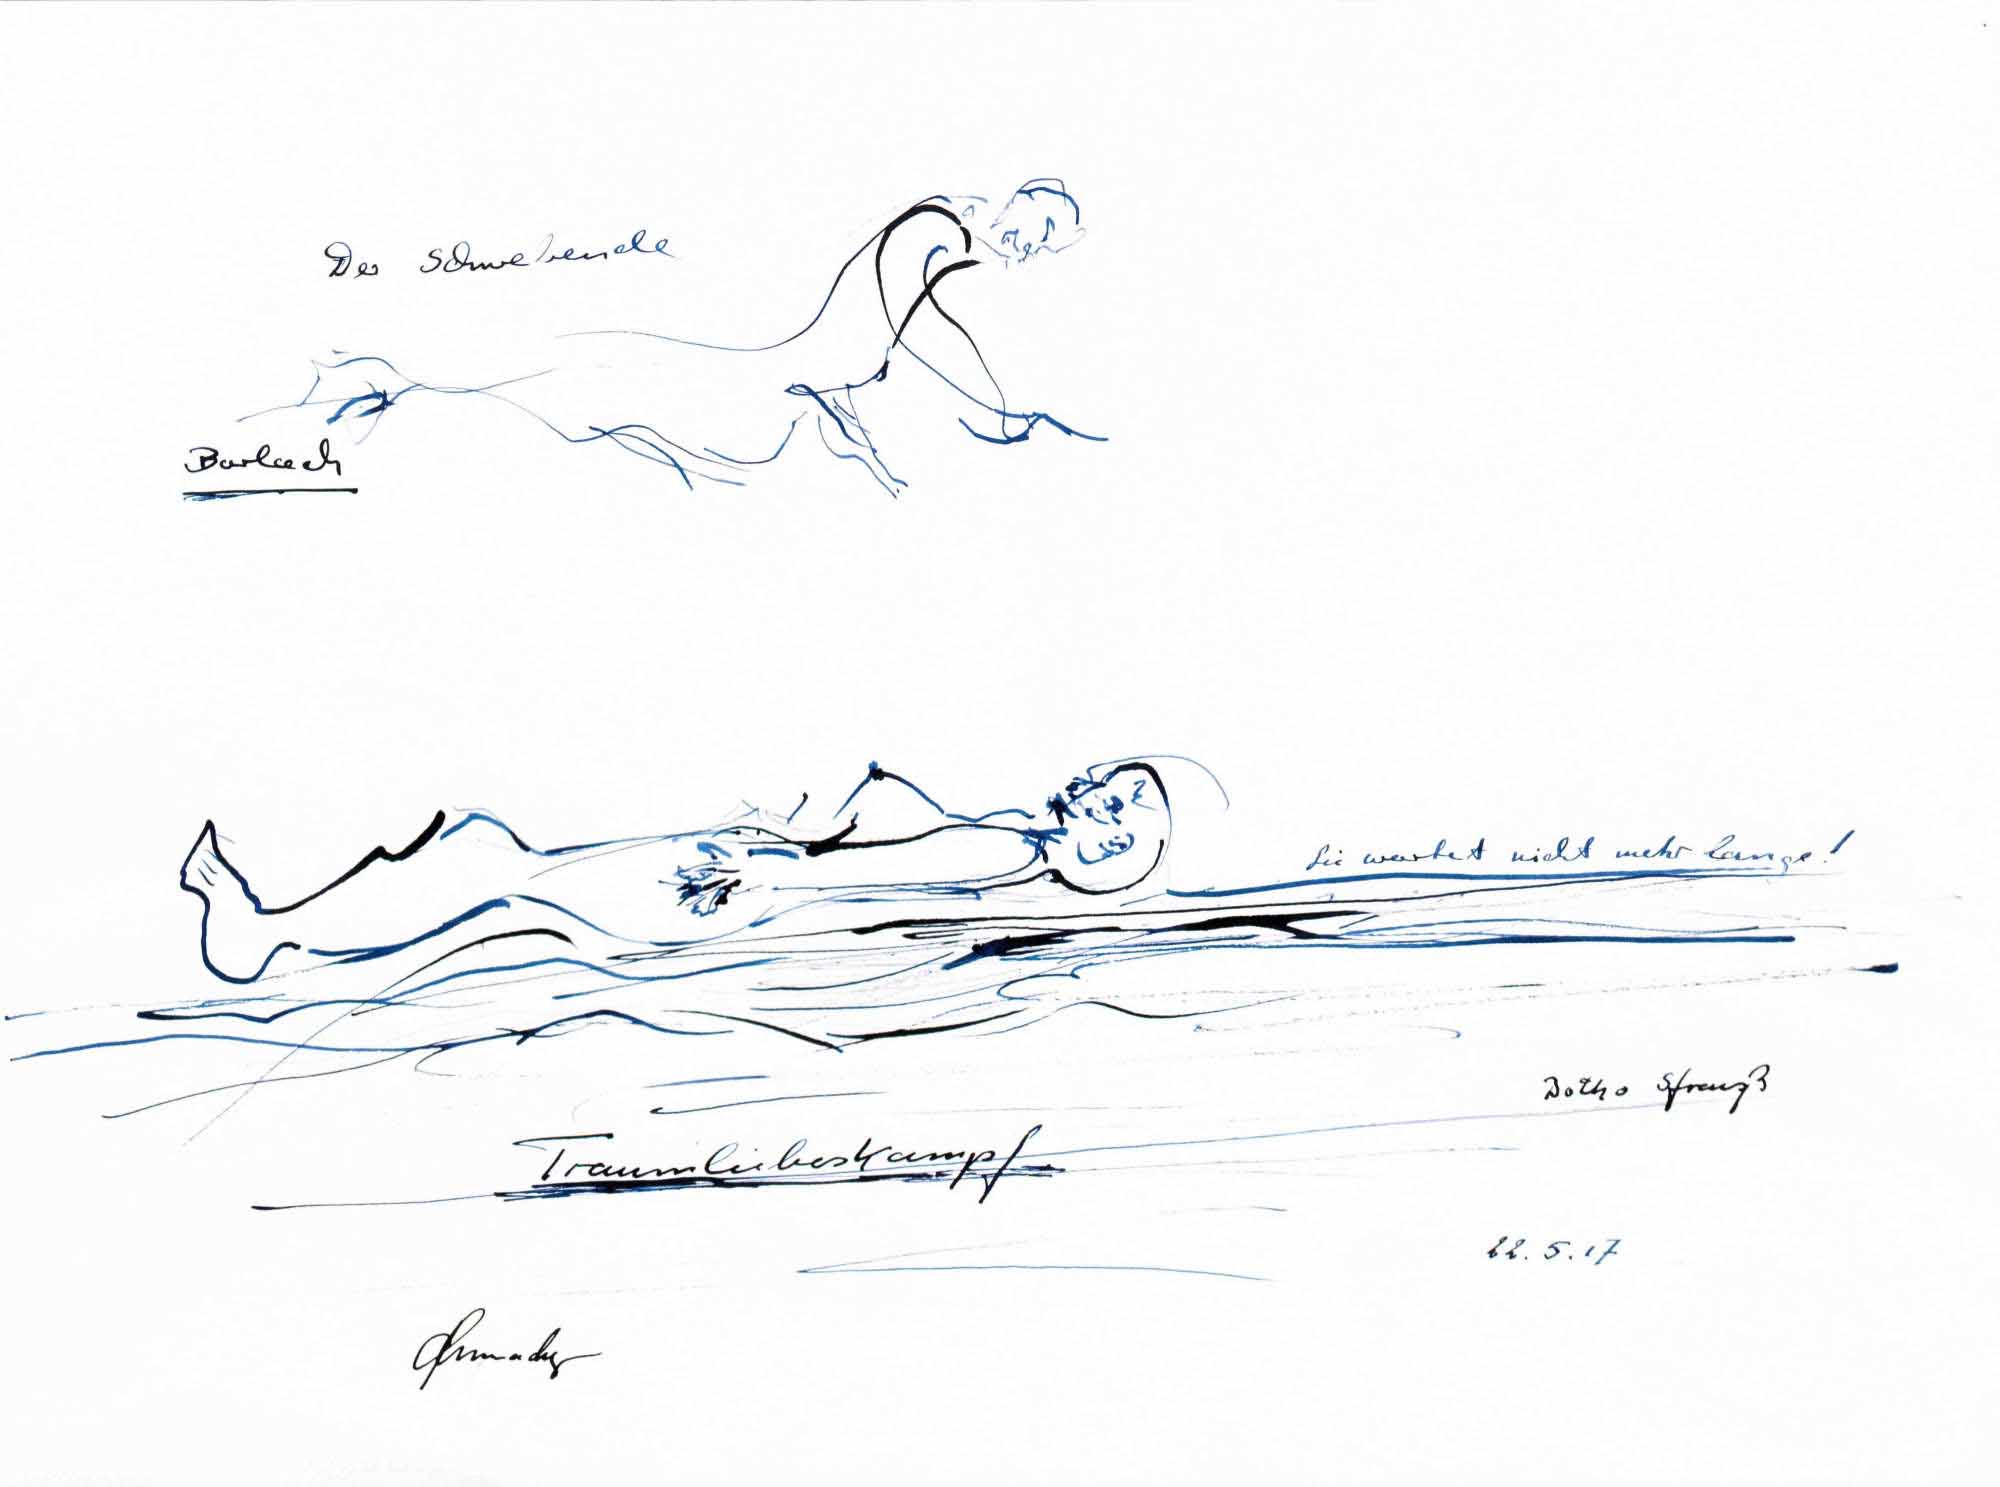 Der Schwebende
Barlach
Sie wartet nicht mehr lange!
Botho Strauß
Traumliebeskampf
22.5.17